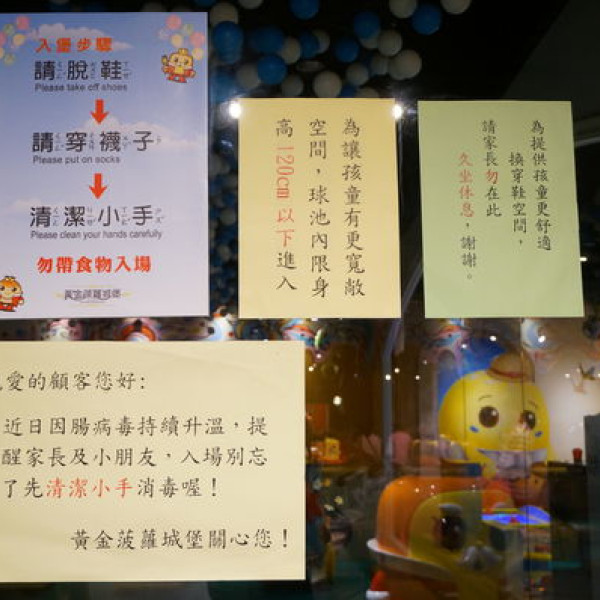 入堡步驟
請脫鞋
Please take off shoes
請穿襪子
Please put on socks
清潔小手
Please clean your hands carefully
勿帶食物入場
黃金菠蘿城堡
為讓孩童有更寬敞
空間，球池內限身
高120cm以下進入
為提供孩童更舒適
換穿鞋空間，
請家長勿在此
久坐休息，謝謝。
愛的顧客您好:
近日因腸病毒持續升溫，提
醒家長及小朋友，入場別忘
了先清潔小手消毒喔！
黃金菠蘿城堡關心您！